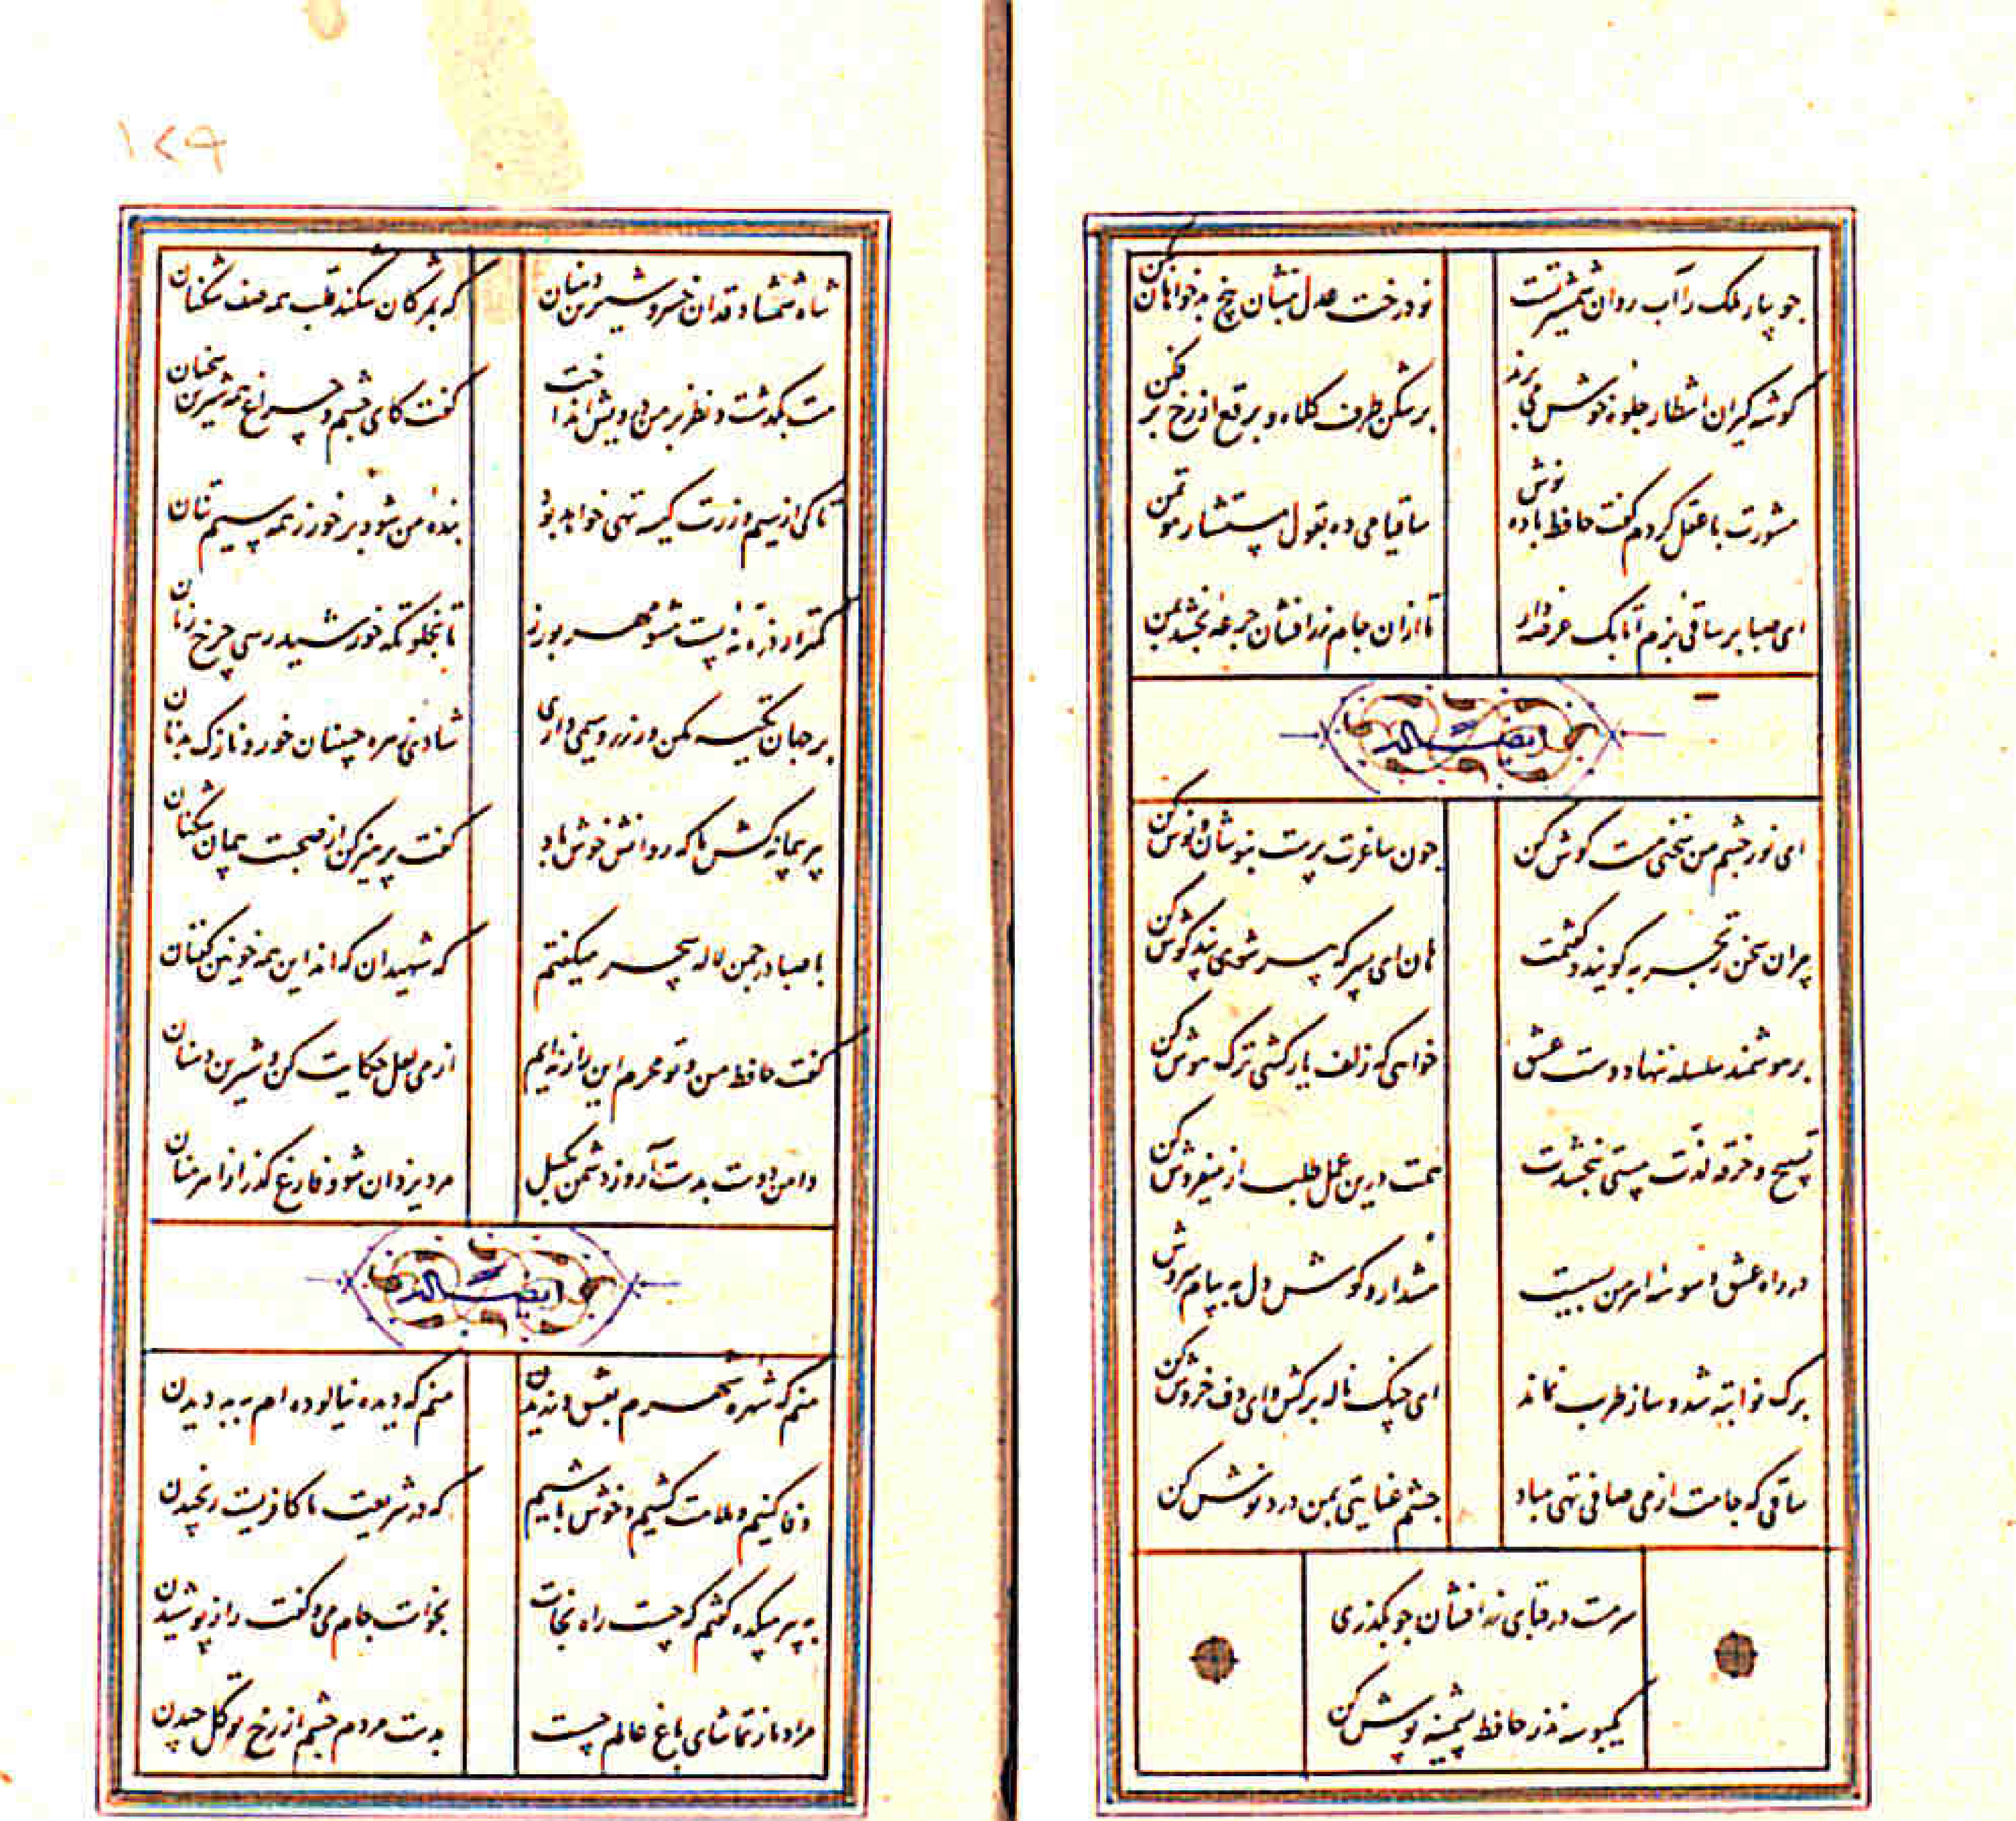 جویبار ملک را آب روان شمشیر تست
تو درخت عدل بنشان بیخ بدخواهان بکن
گوشه گیران انتظار جلوهٔ خوش می برند
بر شکن طرف کلاه و برقع از رخ بر فکن
مشورت با عقل کردم گفت حافظ باده نوش
ساقیا می ده بقول مستشار موتمن
ای صبا بر ساقی بزم اتابک عرضه دار
تا از آن جام زرافشان جرعهٔ بخشد بمن
ایضاً له
ای نور چشم من سخنی هست گوش کن
چون ساغرت پرست بنوشان و نوش کن
پیران سخن ز تجربه گویند گفتمت
هان ای پسر که پیر شوی پند گوش کن
بر هوشمند سلسله ننهاد دست عشق
خواهی که زلف یار کشی ترک هوش کن
تسبیح و خرقه لذت مستی نبخشدت
همت درین عمل طلب از میفروش کن
در راه عشق وسوسه اهرمن بسیست
هشدار و گوش دل به پیام سروش کن
برگ نوا تبه شد و ساز طرب نماند
ای چنگ ناله برکش و ای دف خروش کن
ساقی که جامت از می صافی تهی مباد
چشم عنایتی بمن درد نوش کن
سرمست در قبای زرافشان چو بگذری
یکبوسه نذر حافظ پشمینه پوش کن
۱۷۹
شاه شمشاد قدان خسرو شیرین دهنان
که بمژگان شکند قلب همه صف شکنان
مست بگذشت و نظر بر من درویش انداخت
گفت کای چشم و چراغ همه شیرین سخنان
تا کی از سیم و زرت کیسه تهی خواهد بود
بندهٔ من شو و بر خور ز همه سیم تنان
کمتر از ذره نهٔ پست مشو مهر بورز
تا بخلوتگه خورشید رسی چرخ زنان
بر جهان تکیه مکن ور زر و سیمی داری
شادی زهره جبینان خور و نازک بدنان
پیر پیمانه کش ما که روانش خوش باد
گفت پرهیز کن از صحبت پیمان شکنان
با صبا در چمن لاله سحر میگفتم
که شهیدان که اند این همه خونین کفنان
گفت حافظ من و تو محرم این راز نه ایم
از می لعل حکایت کن و شیرین دهنان
دامن دوست بدست آر و ز دشمن بگسل
مرد یزدان شو و فارغ گذر از اهرمنان
ایضاً له
منم که شهره شهرم بعشق ورزیدن
منم که دیده نیالوده ام به بد دیدن
وفا کنیم و ملامت کشیم و خوش باشیم
که در شریعت ما کافریست رنجیدن
به پیر میکده گفتم که چیست راه نجات
بخواست جام می و گفت راز پوشیدن
مراد ما ز تماشای باغ عالم چیست
بدست مردم چشم از رخ تو گل چیدن